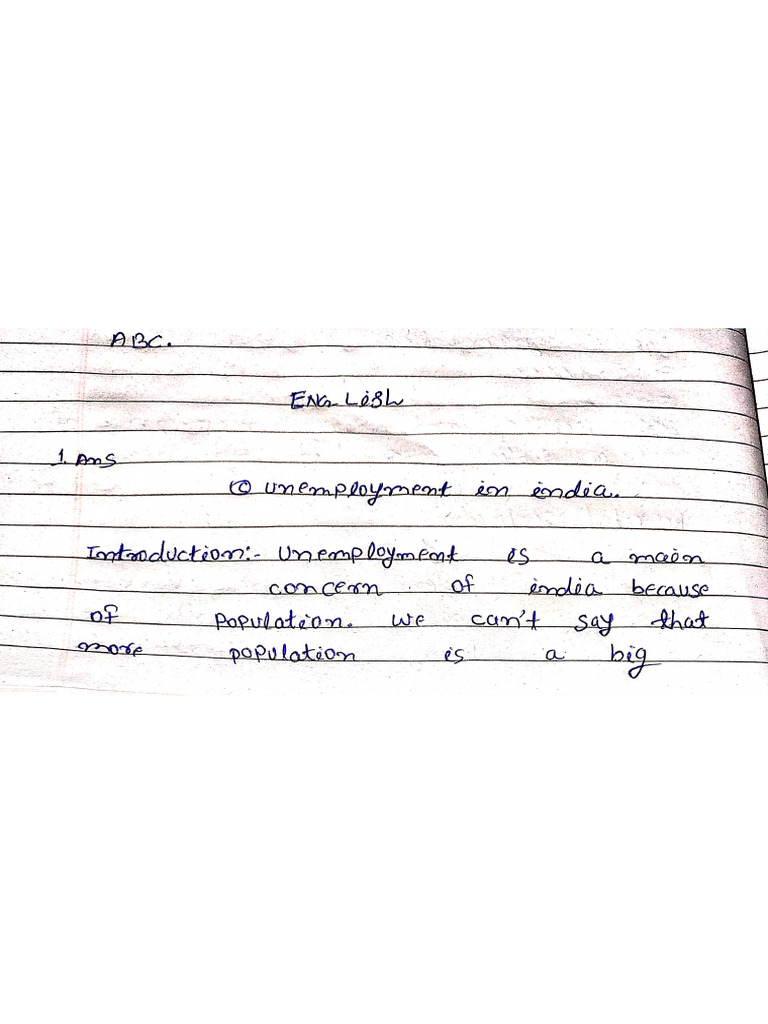 ABC.
ENGLiSh
1. Ans
(c) unemployment in india.
Introduction:- Unemployment is a main
concern of india because
of population. we can't say that
more population is a big